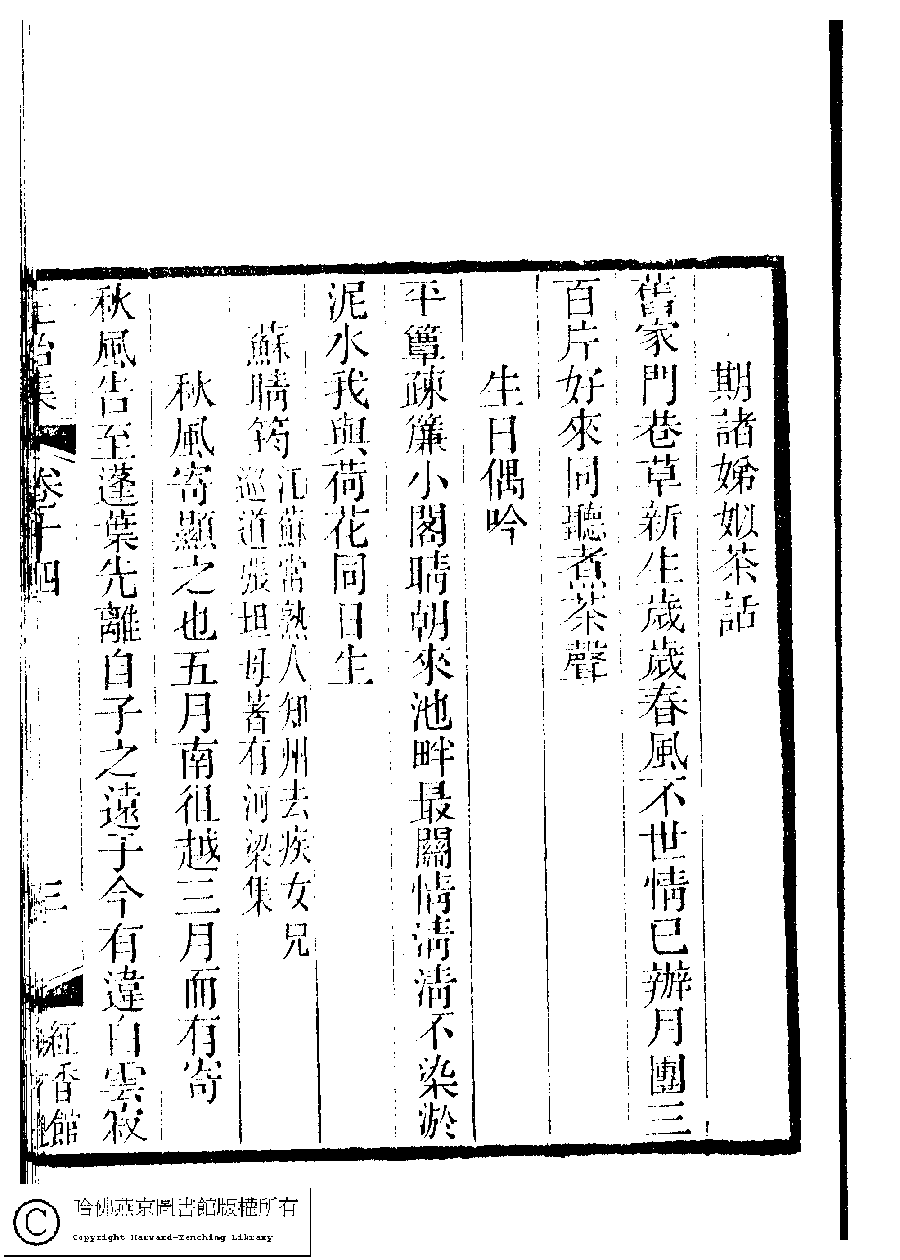 期諸娣姒茶話
舊家門巷草新生歲歲春風不世情已辦月團三
百片好來同聽煮茶聲
生日偶吟
平簟疎簾小閣晴朝來池畔最關情淸淸不染淤
泥水我與荷花同日生
蘇晴筠江蘇常熟人知州去疾女兄
巡道張坦母著有河梁集
秋風寄顯之也五月南徂越三月而有寄
秋風告至蓬葉先離自子之遠于今有違白雲寂
正始集 卷十四 三 紅香館
哈佛燕京圖書館版權所有
Copyright Harvard-Yenching Library